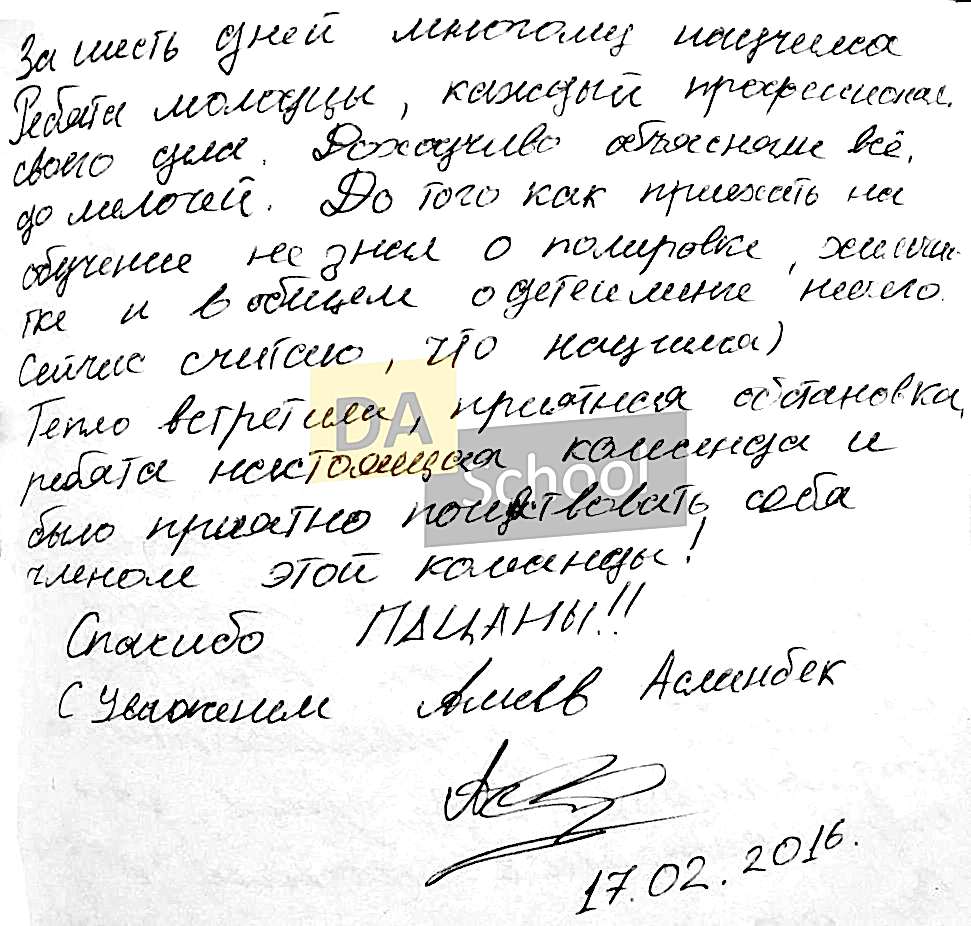 За шесть дней многому научился
Ребята молодцы, каждый профессионал
своего дела. Доходчиво объясняли всё,
до мелочей. До того как приехать на
обучение не знал о полировке, химчи-
тке и в общем о детейлинге ничего.
Сейчас считаю, что научился)
Тепло встретили, приятная обстановка,
ребята настоящая команда и
было приятно почувствовать себя
членом этой команды!
Спасибо ПАЦАНЫ!!
С Уважением Алиев Асланбек
17.02.2016.
DA
School